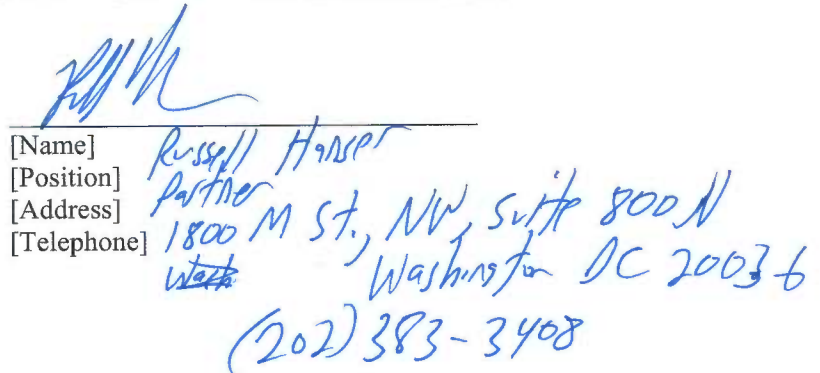 [Name] Russell Hanser
[Position] Partner
[Address] 1800 M St., NW, Suite 800 N
[Telephone] Washington DC 20036
(202) 383-3408